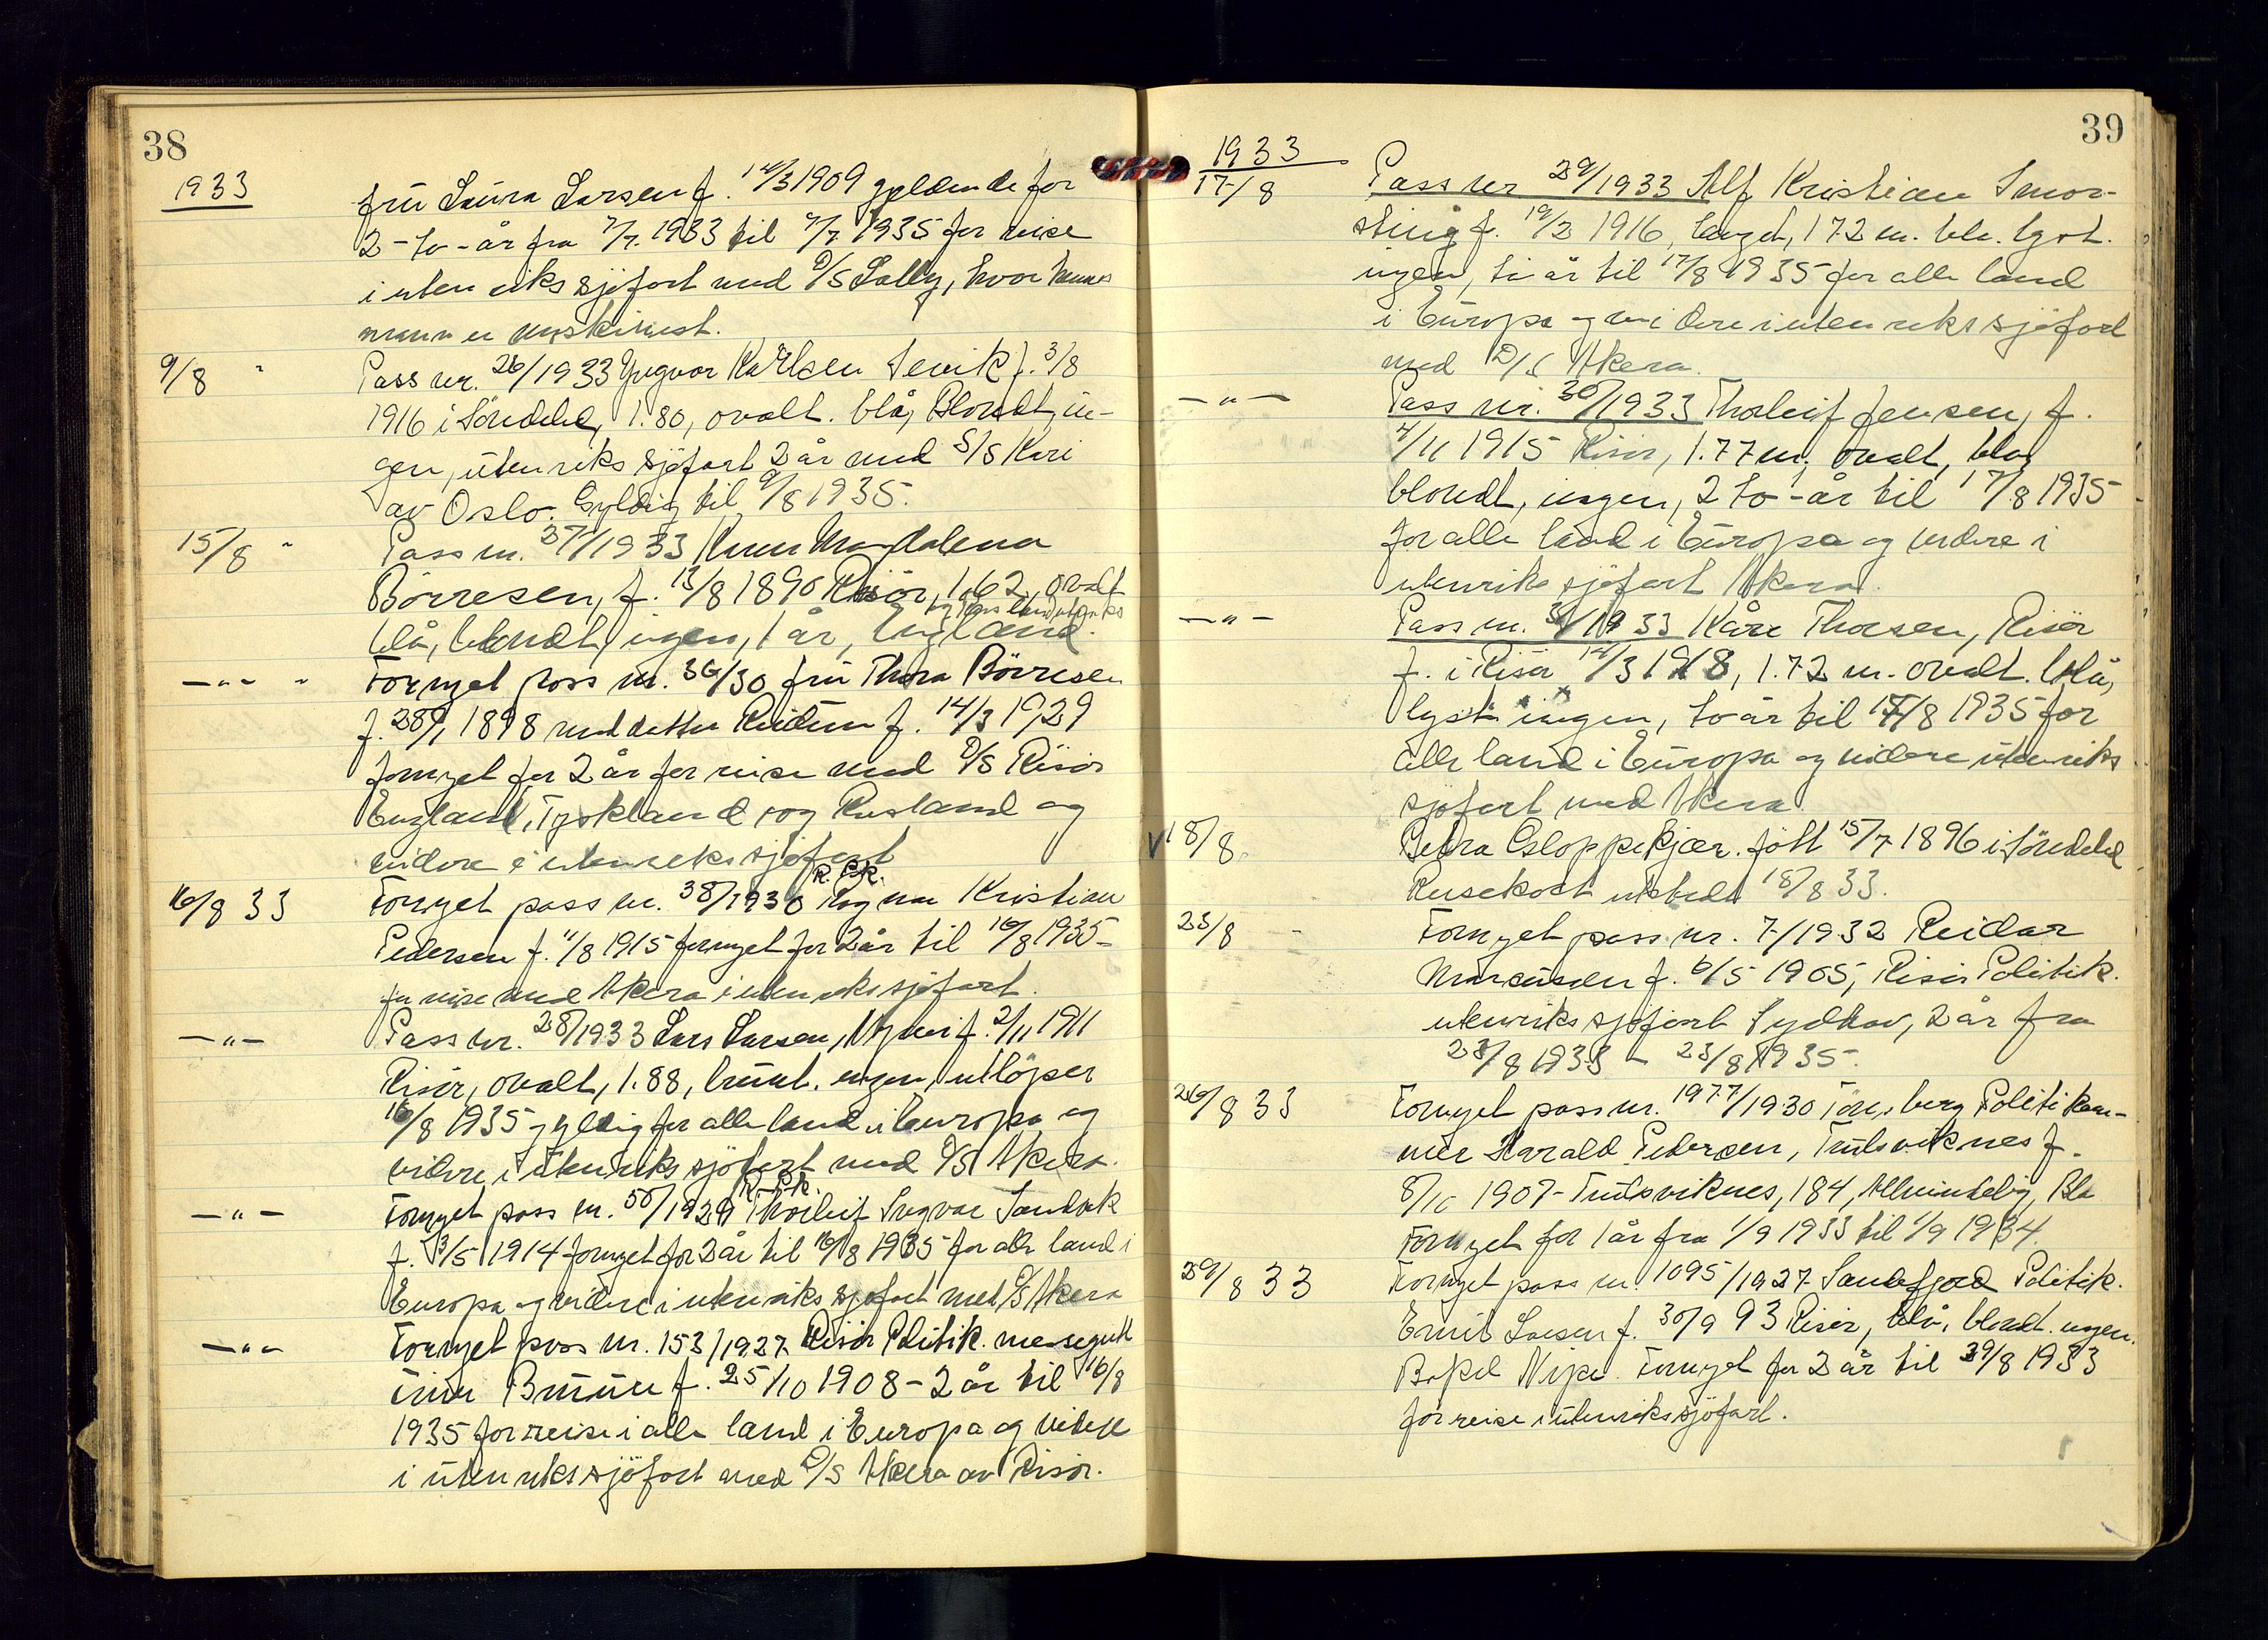 38
1933
frü Laura Larsen f. 14/3 1909 gyldende for
2-to-år fra 7/7. 1933 til 7/7 1935 for reise
i uten riks sjöfart med D/S Sally, hvor hennes
mann er maskinist.
9/8 " Pass nr. 26/1933 Yngvar Karlsen Sevik f. 3/8
1916 i Söndeled, 1.80, ovalt. blå, Blondt, in-
gen, utenriks sjöfart 2 år med S/S Kari
av Oslo. Gyldig til 9/8 1935.
15/8 " Pass nr. 27/1933 Karen Magdalena
Börresen, f. 13/8 1890 Risör, 1.62, ovalt
blå, blondt, ingen, 1 år, England.
—"— " Fornyet pass nr. 36/30 frü Thora Börresen
f. 28/1 1898 med datter Reidun f. 14/3 1929
fornyet for 2 år for reise med D/S Risör
England, Tyskland og Rusland og
videre i utenriks sjöfart
R. Pk.
16/8 33 Fornyet pass nr. 38/1930 Ragnar Kristian
Pedersen f. 11/8 1915 fornyet for 2 år til 16/8 1935-
for reise med Akera i utenriks sjöfart.
—"— Pass nr. 28/1933 Lars Larsen, f. 2/11 1911
Risör, ovalt, 1.88, brunt. ingen, utlöper
16/8 1935 gyldig for alle land i Europa og
videre i utenriks sjöfart med D/S Akera.
R. Pk.
—"— Fornyet pass nr. 50/1929 Thorleif Ingvar Sandvik
f. 3/5 1914 fornyet for 2 år til 16/8 1935 for alle land i
Europa og videre i utenriks sjöfart med D/S Akera
—"— Fornyet pass nr. 153/1927 Risör Politik. messegutt
Einar Bruun f. 25/10 1908 - 2 år til 16/8
1935 for reise i alle land i Europa og videre
i utenriks sjöfart med D/S Akera av Risör.
39
1933
17/8 Pass nr 29/1933 Alf Kristian Smor-
sting f. 19/2 1916, lenget, 172 m. blå. lyst.
ingen, to år til 17/8 1935 for alle land
i Europa og videre i utenriks sjöfart
med D/S Akera.
—"— Pass nr. 30/1933 Thorleif Jensen, f.
4/11 1915 Risör, 1.77 m. ovalt, blå
blondt, ingen, 2 to-år til 17/8 1935
for alle land i Europa og videre i
utenriks sjöfart Akera.
—"— Pass nr. 31/1933 Kåre Thorsen, Risör
f. i Risör 14/3 1918, 1.72 m. ovalt. blå,
lyst. ingen, to år til 17/8 1935 for
alle land i Europa og videre utenriks
sjöfart med Akera.
V 18/8. Petra Gloppekjær. född 15/7 1896 i Söndeled
Reisekort utstedt 18/8 33.
23/8 - Fornyet pass nr. 7/1932 Reidar
Marcussen f. 6/5 1905, Risör Politik.
utenriks sjöfart Sydhav, 2 år fra
23/8 1933 - 23/8 1935.
26/8 33 Fornyet pass nr. 1977/1930 Tönsberg Politikam-
mer Harald Pedersen, Trulsviknes f.
8/10 1907 - Trulsviknes, 184, Almindelig, Blå
Fornyet for 1 år fra 1/9 1933 til 1/9 1934.
29/8 33 Fornyet pass nr. 1095/1927 Sandefjord Politik.
Emil Larsen f. 30/9 93 Risör, blå, blondt. ingen.
Bopel Fornyet for 2 år til 29/8 1933
for reise i utenriks sjöfart.